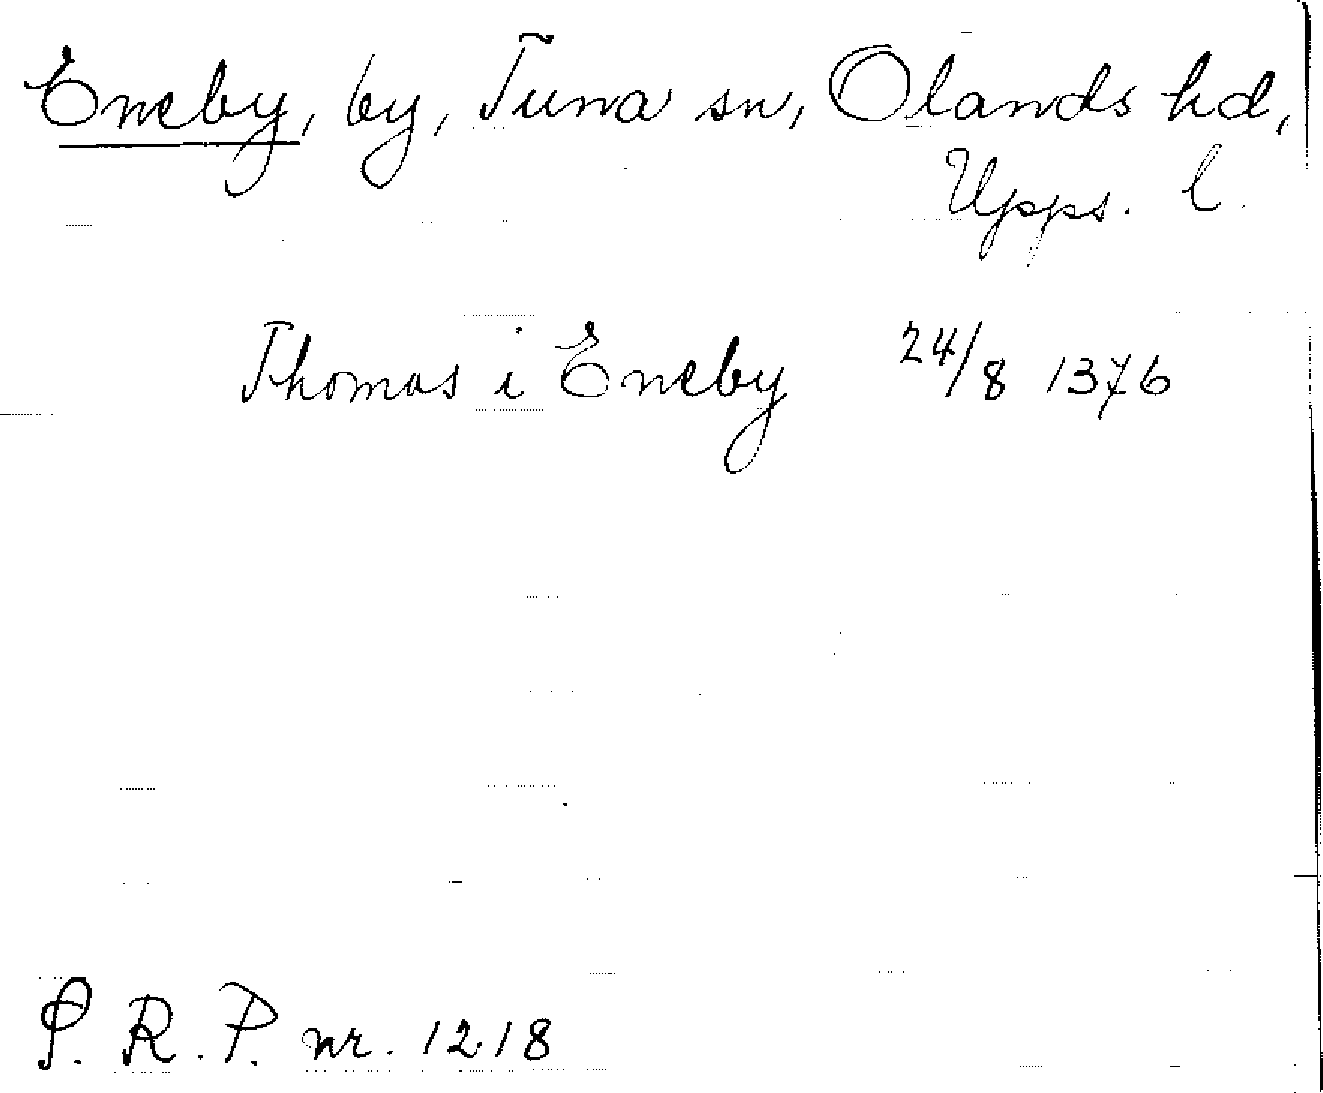 Eneby, by, Tuna sn, Olands hd,
Upps. l.
Thomas i Eneby 24/8 1376
S. R. P. nr. 1218